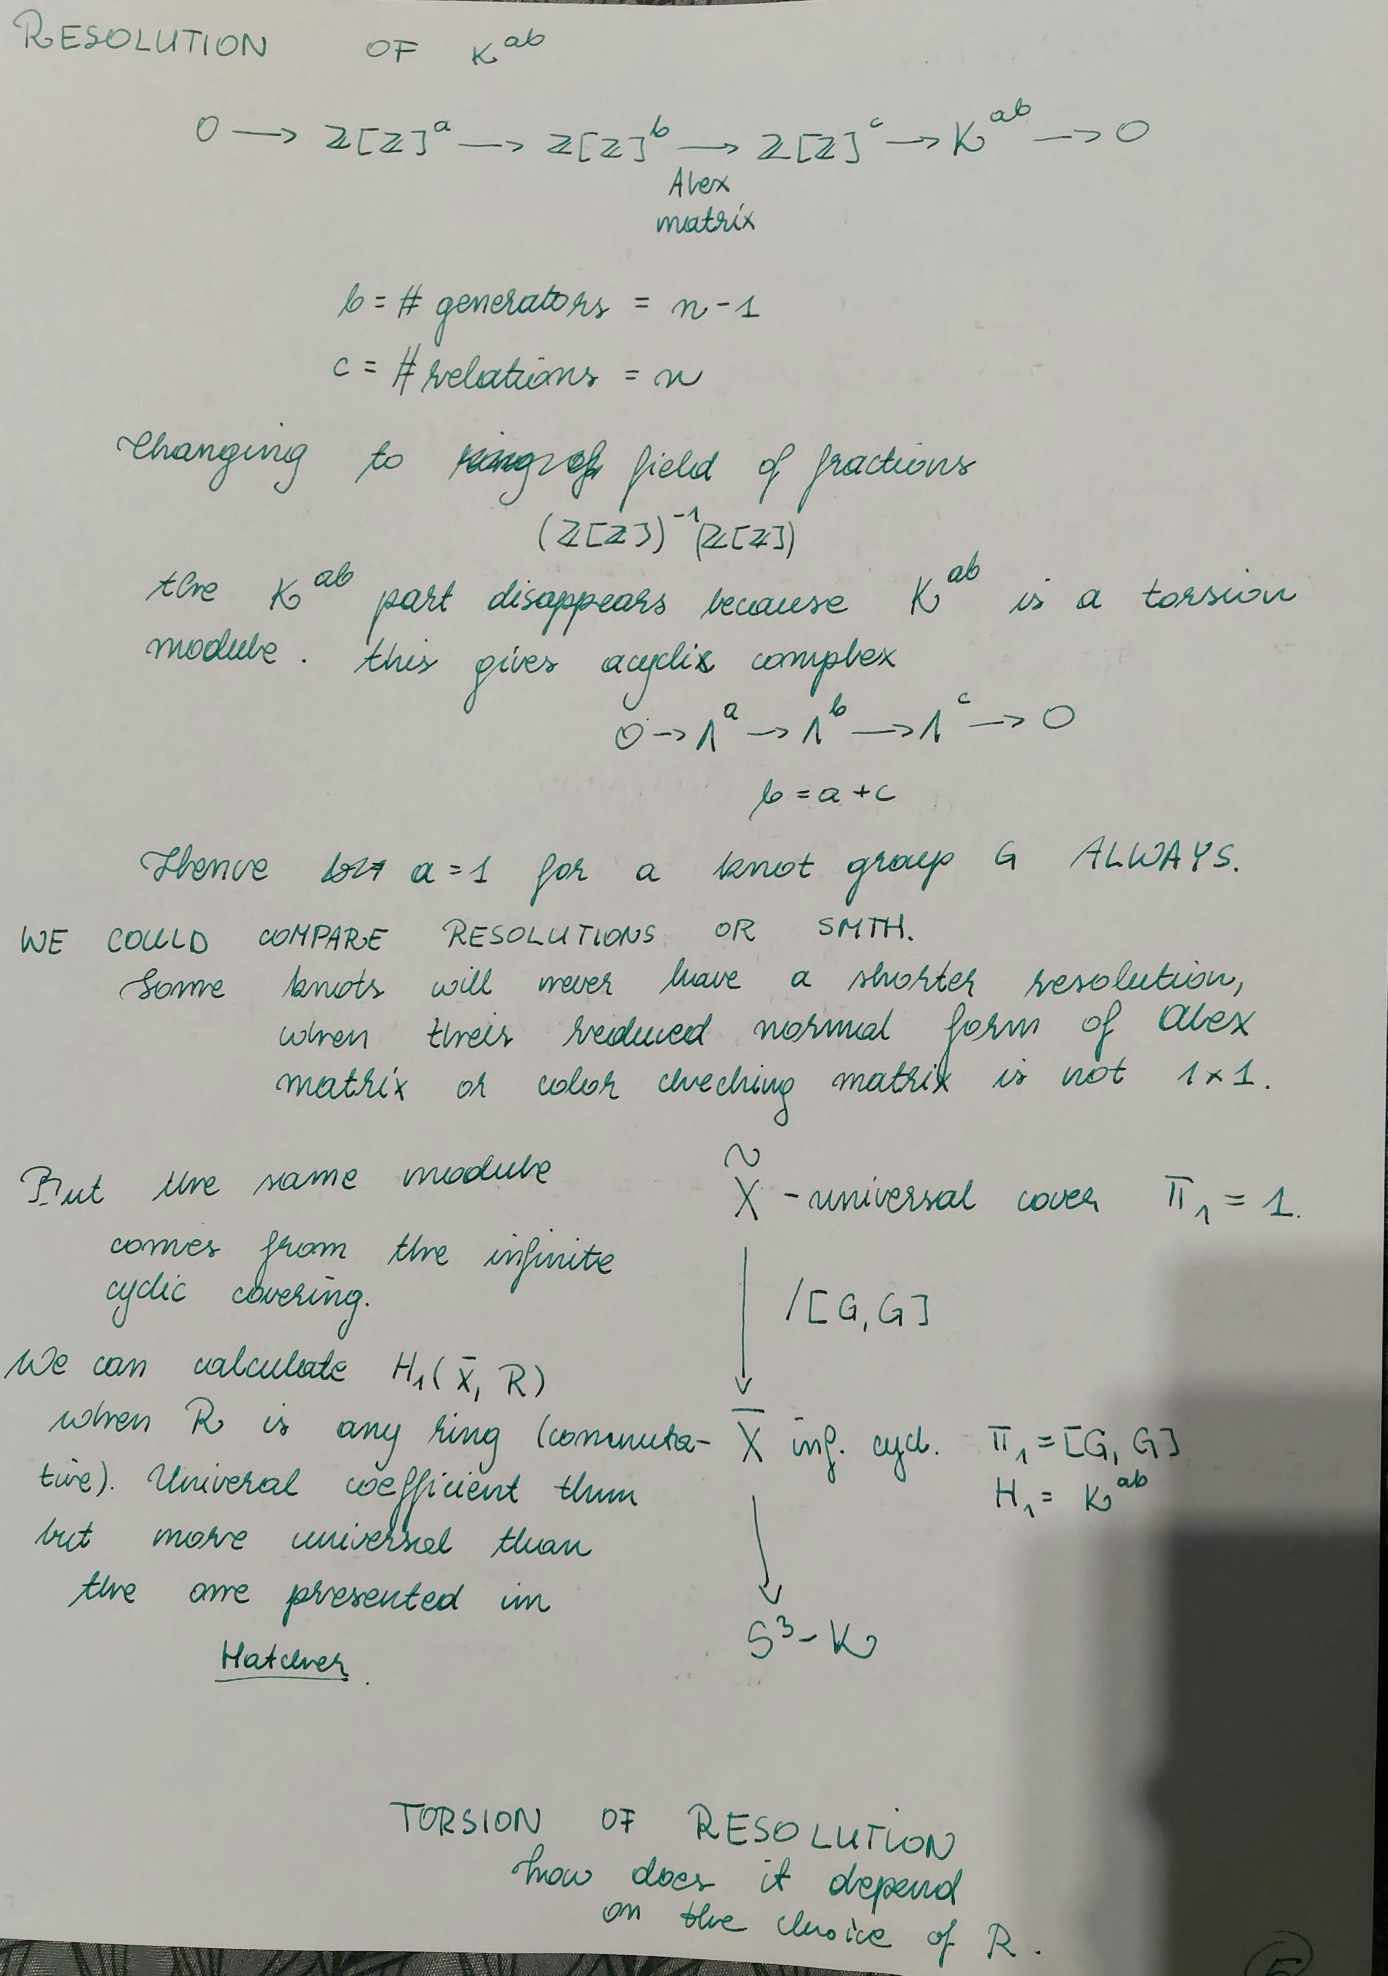 RESOLUTION OF K^ab
0 → ℤ[ℤ]^a → ℤ[ℤ]^b → ℤ[ℤ]^c → K^ab → 0
Alex
matrix
b = # generators = n - 1
c = # relations = n
Changing to ring of field of fractions
(ℤ[ℤ])^-1 (ℤ[ℤ])
the K^ab part disappears because K^ab is a torsion
module. this gives acyclic complex
0 → Λ^a → Λ^b → Λ^c → 0
b = a + c
Hence a = 1 for a knot group G ALWAYS.
WE COULD COMPARE RESOLUTIONS OR SMTH.
Some knots will never have a shorter resolution,
when theis reduced normal form of Alex
matrix or color checking matrix is not 1×1.
But the same module
comes from the infinite
cyclic covering.
We can calculate H₁(X̄, R)
when R is any ring (commuta-
tive). Univeral coefficient thm
but more universal than
the one presented in
Hatcher.
X̃ - universal cover π₁ = 1.
/[G, G]
X̄ inf. cycl. π₁ = [G, G]
H₁ = K^ab
S³ - K
TORSION OF RESOLUTION
how does it depend
on the choice of R.